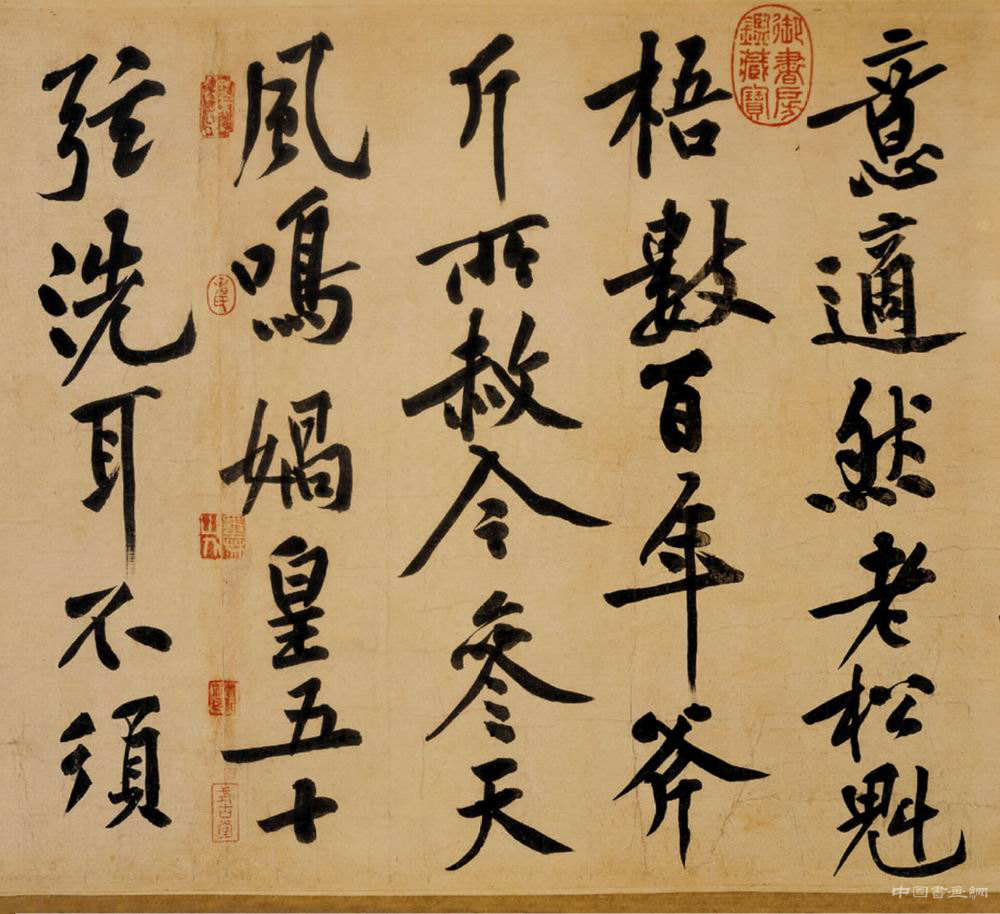 意適然老松魁
梧數百年斧
斤所赦令參天
風鳴媧皇五十
弦洗耳不須
御書房鑑藏寶
式古堂
中国書画網